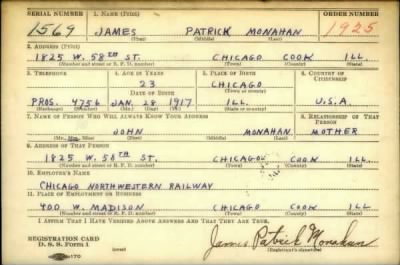 SERIAL NUMBER 1. NAME (Print) ORDER NUMBER
1569 JAMES PATRICK MONAHAN 1925
(First) (Middle) (Last)
2. ADDRESS (Print)
1825 W. 58TH ST. CHICAGO COOK ILL.
(Number and street or R. F. D. number) (Town) (County) (State)
3. TELEPHONE 4. AGE IN YEARS 5. PLACE OF BIRTH 6. COUNTRY OF CITIZENSHIP
23 CHICAGO
DATE OF BIRTH (Town or county)
PROS. 4756 JAN. 28 1917 ILL. U.S.A.
(Exchange) (Number) (Mo.) (Day) (Yr.) (State or country)
7. NAME OF PERSON WHO WILL ALWAYS KNOW YOUR ADDRESS 8. RELATIONSHIP OF THAT PERSON
JOHN MONAHAN MOTHER
(Mr., Mrs., Miss) (First) (Middle) (Last)
9. ADDRESS OF THAT PERSON
1825 W. 58TH ST. CHICAGO COOK ILL.
(Number and street or R. F. D. number) (Town) (County) (State)
10. EMPLOYER'S NAME
CHICAGO NORTHWESTERN RAILWAY
11. PLACE OF EMPLOYMENT OR BUSINESS
400 W. MADISON CHICAGO COOK ILL
(Number and street or R. F. D. number) (Town) (County) (State)
I AFFIRM THAT I HAVE VERIFIED ABOVE ANSWERS AND THAT THEY ARE TRUE.
REGISTRATION CARD
D. S. S. Form 1 (over) James Patrick Monahan
(Registrant's signature)